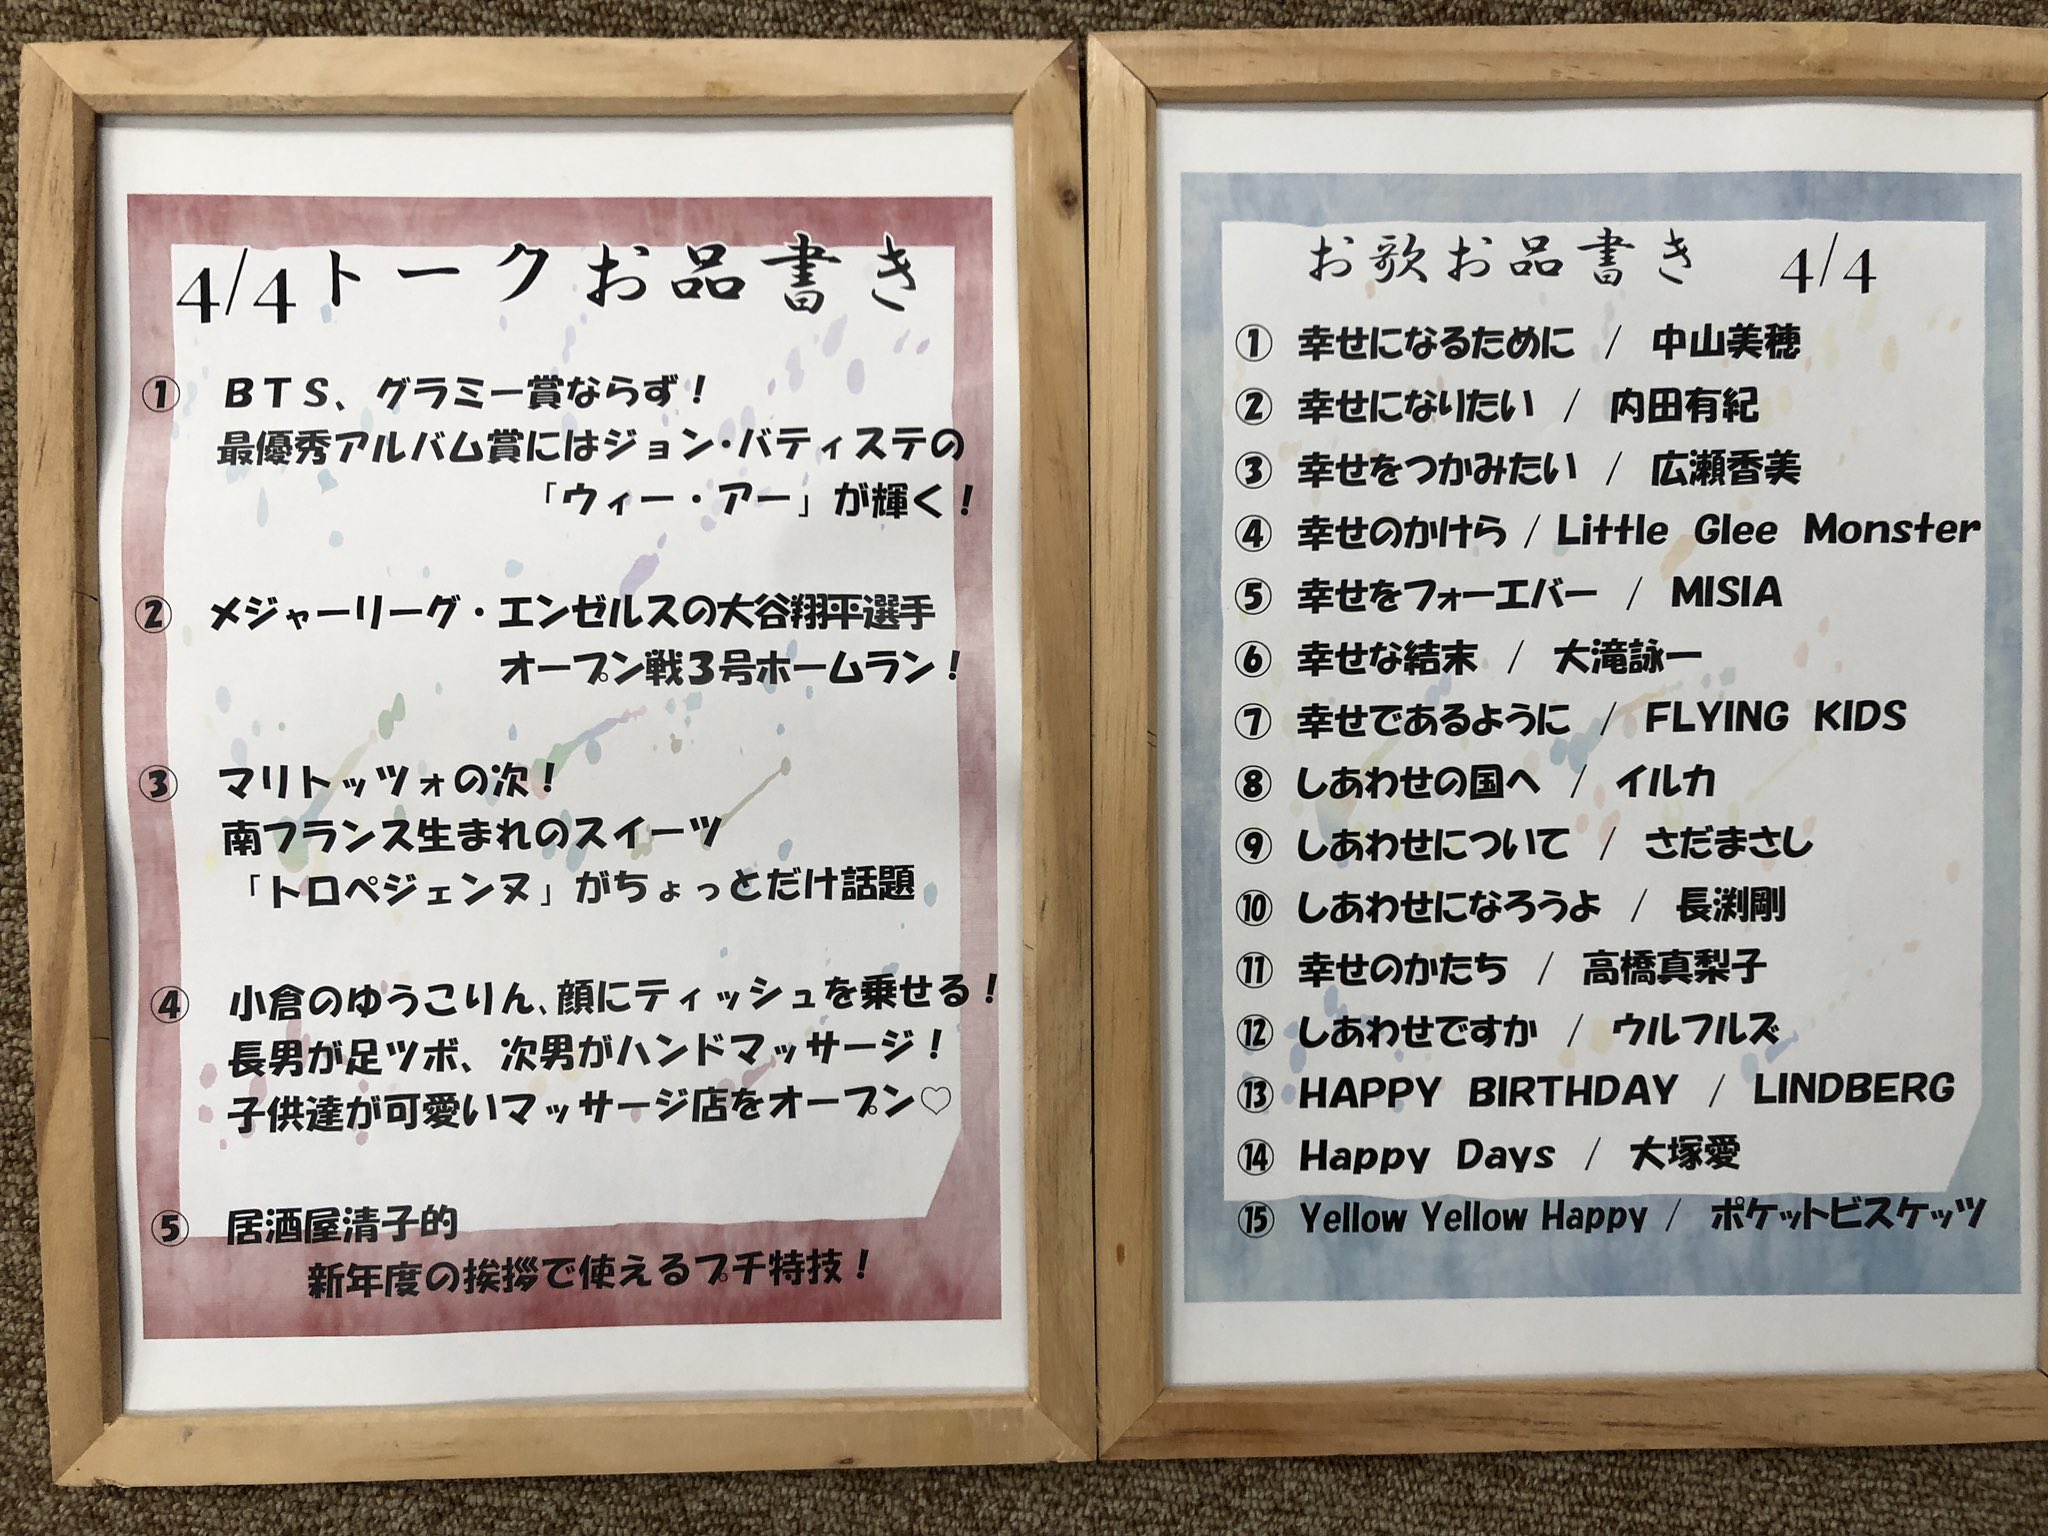 4/4トークお品書き
① BTS、グラミー賞ならず！
最優秀アルバム賞にはジョン・バティステの
「ウィー・アー」が輝く！
② メジャーリーグ・エンゼルスの大谷翔平選手
オープン戦３号ホームラン！
③ マリトッツォの次！
南フランス生まれのスイーツ
「トロペジェンヌ」がちょっとだけ話題
④ 小倉のゆうこりん、顔にティッシュを乗せる！
長男が足ツボ、次男がハンドマッサージ！
子供達が可愛いマッサージ店をオープン♡
⑤ 居酒屋清子的
新年度の挨拶で使えるプチ特技！
お歌お品書き 4/4
① 幸せになるために / 中山美穂
② 幸せになりたい / 内田有紀
③ 幸せをつかみたい / 広瀬香美
④ 幸せのかけら / Little Glee Monster
⑤ 幸せをフォーエバー / MISIA
⑥ 幸せな結末 / 大滝詠一
⑦ 幸せであるように / FLYING KIDS
⑧ しあわせの国へ / イルカ
⑨ しあわせについて / さだまさし
⑩ しあわせになろうよ / 長渕剛
⑪ 幸せのかたち / 高橋真梨子
⑫ しあわせですか / ウルフルズ
⑬ HAPPY BIRTHDAY / LINDBERG
⑭ Happy Days / 大塚愛
⑮ Yellow Yellow Happy / ポケットビスケッツ